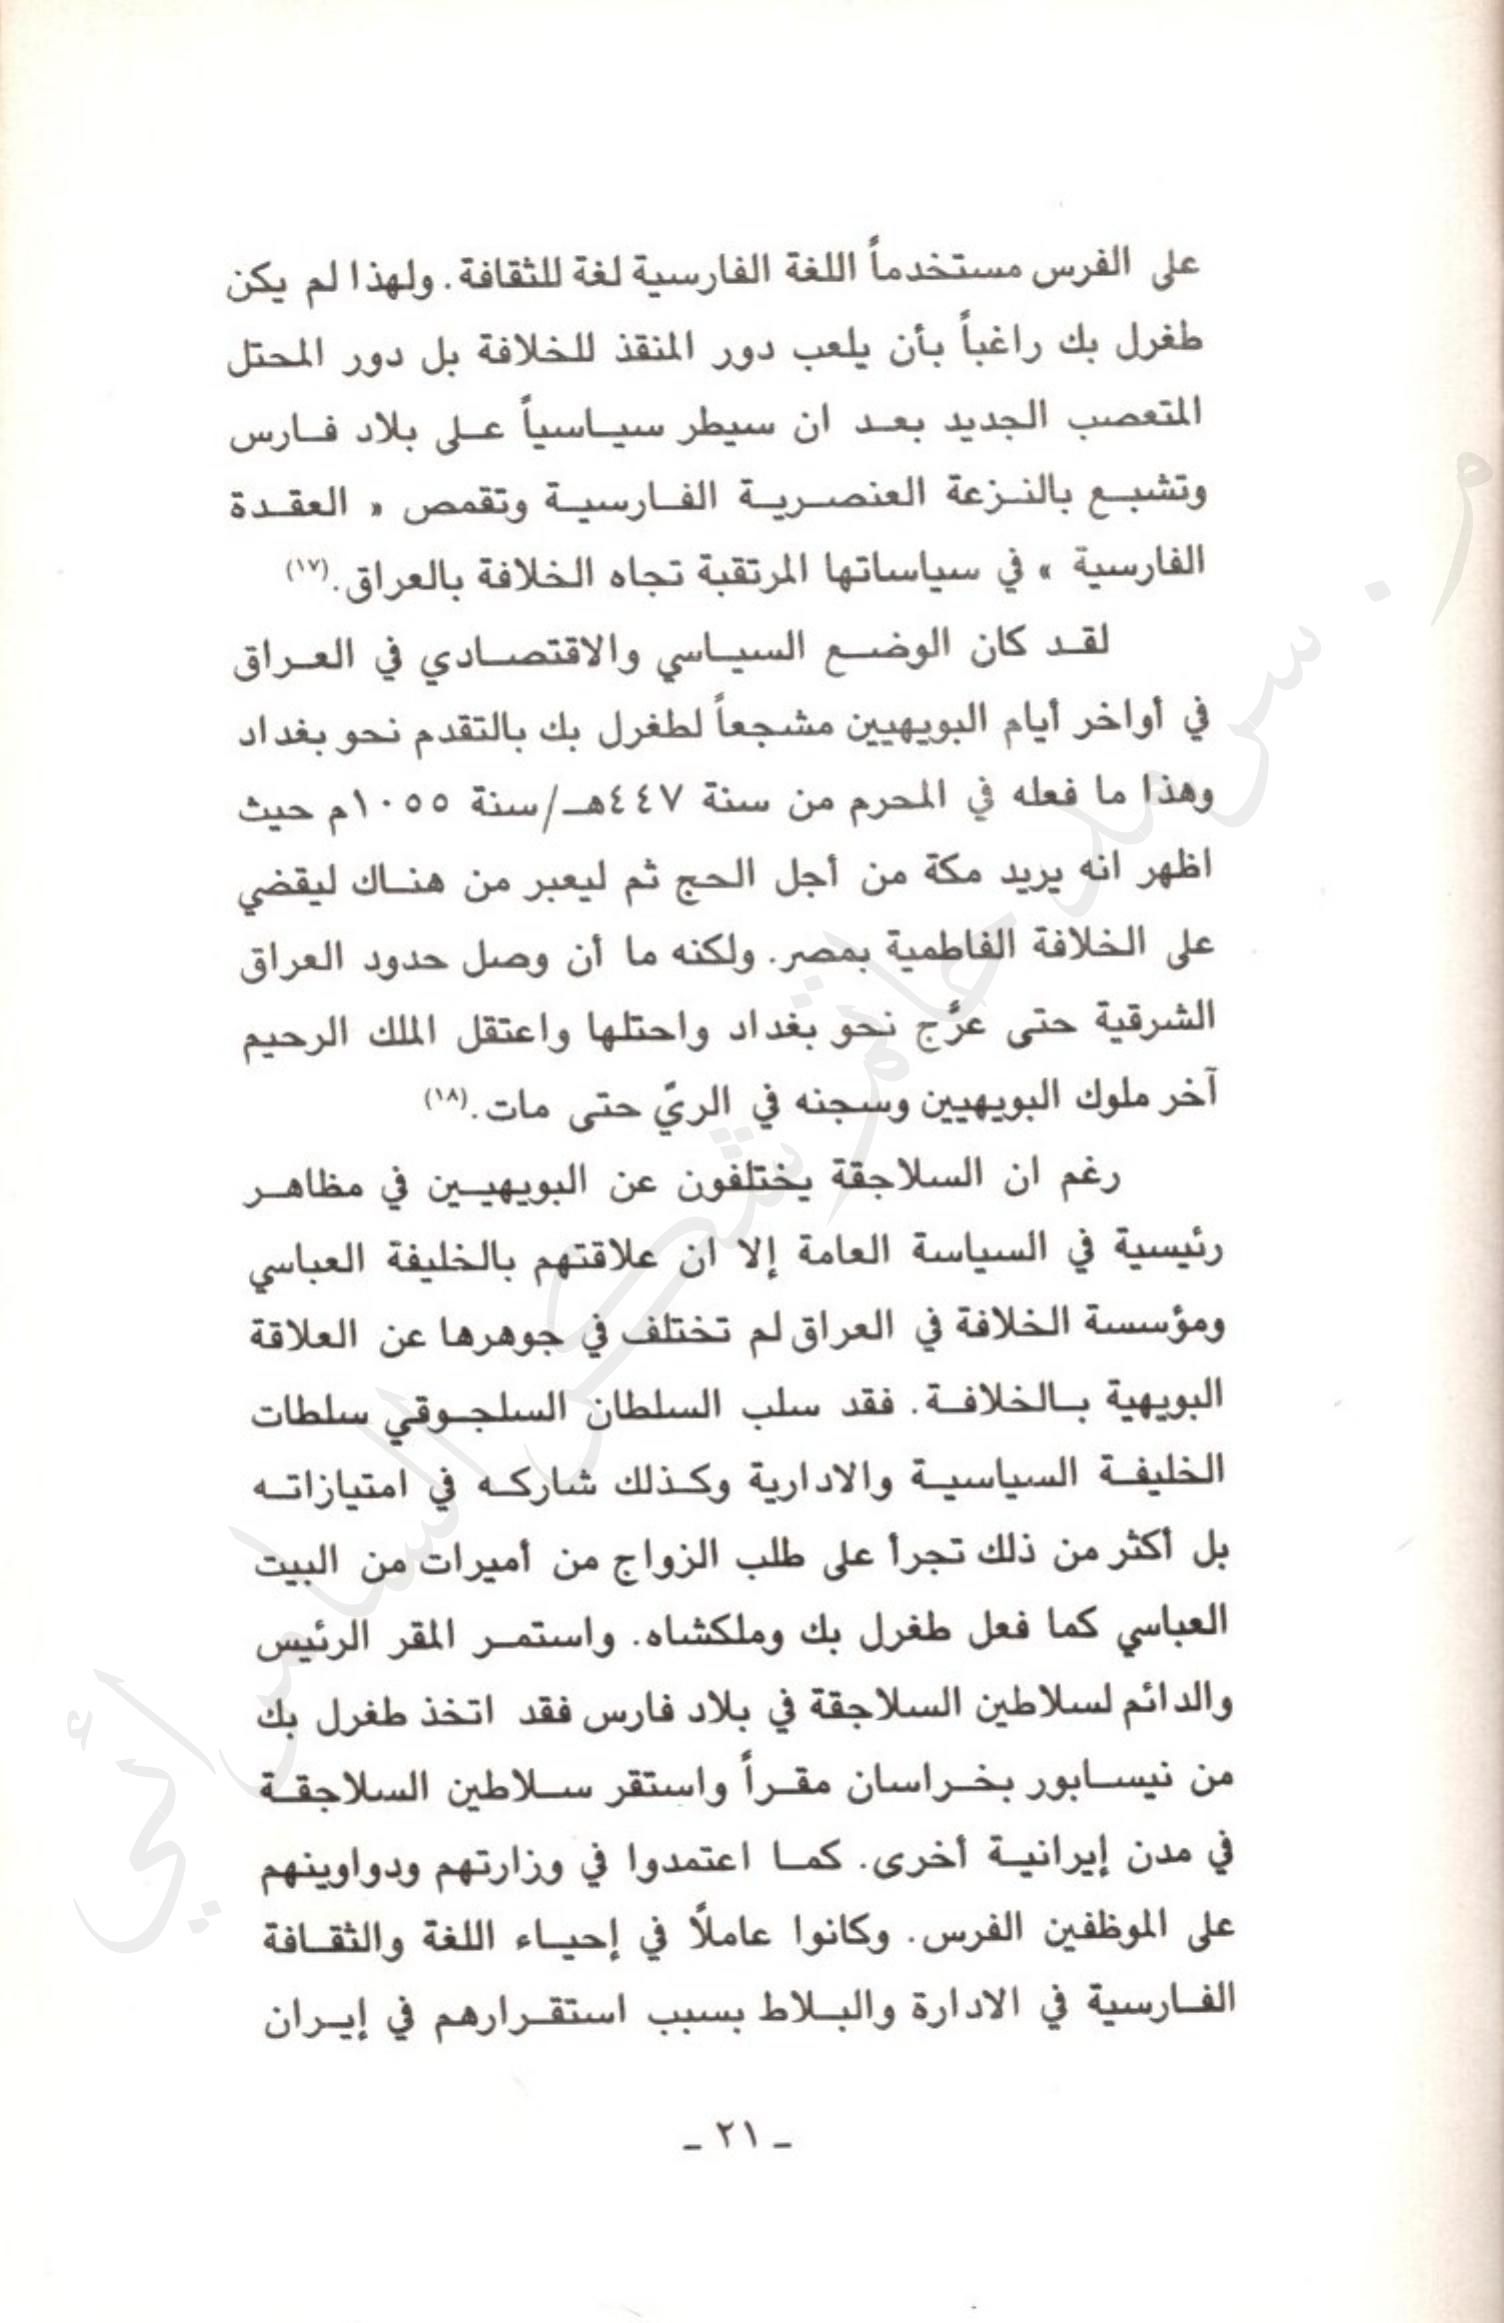 على الفرس مستخدماً اللغة الفارسية لغة للثقافة. ولهذا لم يكن
طغرل بك راغباً بأن يلعب دور المنقذ للخلافة بل دور المحتل
المتعصب الجديد بعد ان سيطر سياسياً على بلاد فارس
وتشبع بالنزعة العنصرية الفارسية وتقمص « العقدة
الفارسية » في سياساتها المرتقبة تجاه الخلافة بالعراق.(١٧)
لقد كان الوضع السياسي والاقتصادي في العراق
في أواخر أيام البويهيين مشجعاً لطغرل بك بالتقدم نحو بغداد
وهذا ما فعله في المحرم من سنة ٤٤٧هـ/سنة ١٠٥٥م حيث
اظهر انه يريد مكة من أجل الحج ثم ليعبر من هناك ليقضي
على الخلافة الفاطمية بمصر. ولكنه ما أن وصل حدود العراق
الشرقية حتى عرَّج نحو بغداد واحتلها واعتقل الملك الرحيم
آخر ملوك البويهيين وسجنه في الريّ حتى مات.(١٨)
رغم ان السلاجقة يختلفون عن البويهيين في مظاهر
رئيسية في السياسة العامة إلا ان علاقتهم بالخليفة العباسي
ومؤسسة الخلافة في العراق لم تختلف في جوهرها عن العلاقة
البويهية بالخلافة. فقد سلب السلطان السلجوقي سلطات
الخليفة السياسية والادارية وكذلك شاركه في امتيازاته
بل أكثر من ذلك تجرأ على طلب الزواج من أميرات من البيت
العباسي كما فعل طغرل بك وملكشاه. واستمر المقر الرئيس
والدائم لسلاطين السلاجقة في بلاد فارس فقد اتخذ طغرل بك
من نيسابور بخراسان مقراً واستقر سلاطين السلاجقة
في مدن إيرانية أخرى. كما اعتمدوا في وزارتهم ودواوينهم
على الموظفين الفرس. وكانوا عاملًا في إحياء اللغة والثقافة
الفارسية في الادارة والبلاط بسبب استقرارهم في إيران
ـ ٢١ ـ